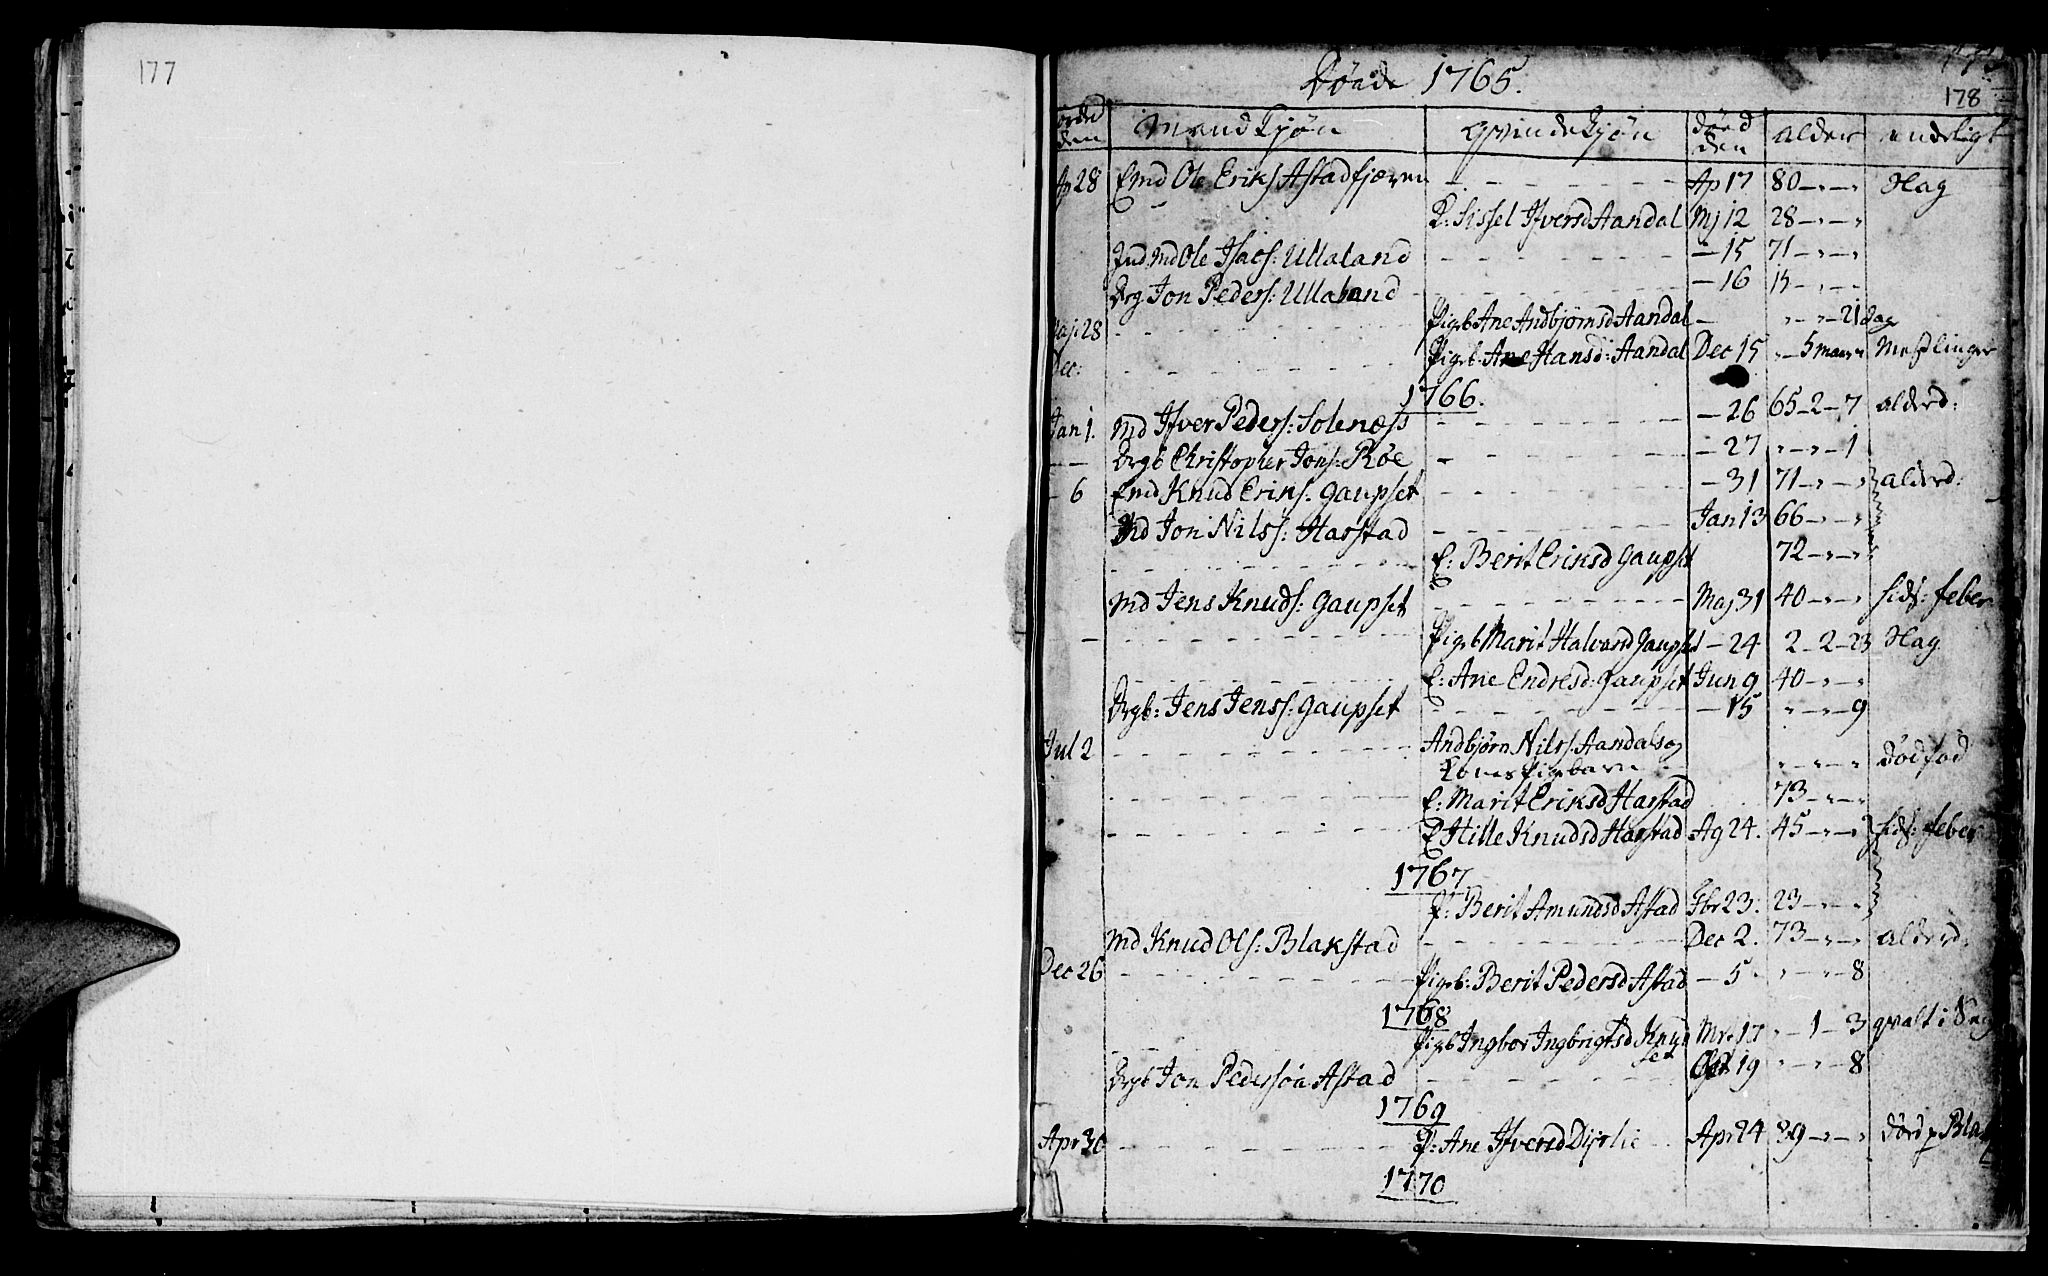 177
178
Døde 1765.
jorded den Mandkjøn qvindekjøn død den alder endeligt
Ap 28 Emd Ole Eriks Astadfjæren - - - - Ap 17 80 - " - " Hag
P: Sissel Ifversd Aandal Mj 12 28 - " - "
Ind. Md Ole Isacs: Ullaland - - - - - 15 71 - " - "
Drg Jon Peders: Ullaland - - - - - 16 15 - " - "
Maj 28 - - - - Pigeb Ane Andbjørnsd Aandal - " - " - 21 dag
Dec: - - - - Pigeb Ane Hansd: Aandal Dec 15 " - 5 maan Meslinger
1766.
Jan 1. Md Ifver Peders: Solenæss - - - - - 26 65 - 2 - 7 alderd:
- - Drgb Christopher Jons: Røe - - - - - 27 " - " - 1
- 6 Emd Knud Eriks: Gaupset - - - - - 31 71 - " - " alderd:
Md Jon Nilss: Harstad - - - - Jan 13 66 - " - "
- - - - E: Berit Eriksd Gaupset 72 - " - "
Md Jens Knuds: Gaupset - - - - Maj 31 40 - " - " sids: feber
- - - - - Pigeb Marit Halvorsd Gaupset - 24 2 - 2 - 23 Hag
- - - - E: Ane Endresd: Gaupset Jun 9 40 - " - "
Drgb: Jens Jenss: Gaupset - - - - - 15 " - " - 9
Jul 2 - - - - Andbjørn Nilss: Aandals og
Kones pigebarn " - " - " dødfød
- - - - E: Marit Eriksd Harstad 73 - " - "
- - - - E Hille Knudsd Harstad Ag 24. 45 - " - " sids: feber
1767
P: Berit Amundsd Astad Fbr 23. 23 - " - "
Md Knud Ols: Blakstad - - - - Dec 2. 73 - " - " alderd:
Dec 26 - - - - Pigeb: Berit Pedersd Astad - 5 " - " - 8
1768
- - - - Pigeb Ingbor Ingbrigtsd Knud
set Mr. 17 " - 1 - 3 qvalt i Seng
Drgb Jon Pedersøn Astad - - - - Oct 19 " - " - 8
1769
Apr 30 - - - - P: Ane Ifversd Diſelie Apr 24 39 - " - " død p Blak
1770